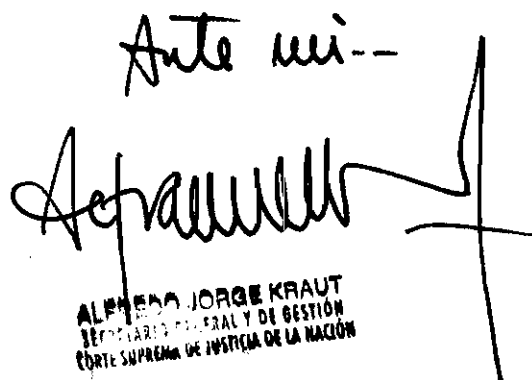 Ante mi--
ALFREDO JORGE KRAUT
SECRETARIO GENERAL Y DE GESTIÓN
CORTE SUPREMA DE JUSTICIA DE LA NACIÓN